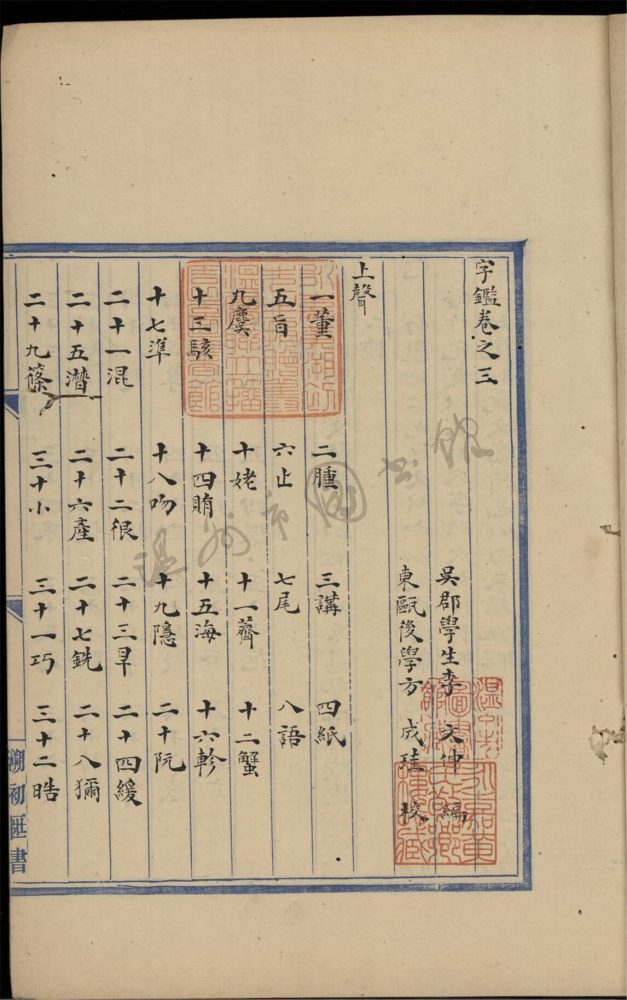 字鑑卷之三
吳郡學生李文仲編
東甌後學方成珪校
上聲
一董 二腫 三講 四紙
五旨 六止 七尾 八語
九麌 十姥 十一薺 十二蟹
十三駭 十四賄 十五海 十六軫
十七準 十八吻 十九隱 二十阮
二十一混 二十二很 二十三旱 二十四緩
二十五潸 二十六產 二十七銑 二十八獮
二十九篠 三十小 三十一巧 三十二晧
朔初匧書
溫州市圖書館